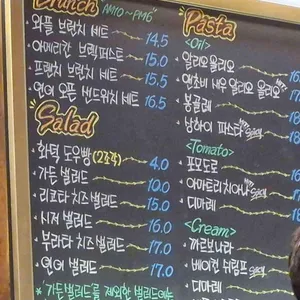 Brunch AM10~PM6
와플 브런치 세트 14.5
아메리칸 브렉퍼스트 15.0
프렌치 브런치 세트 15.5
연어 오픈 샌드위치 세트 16.5
Salad
화덕 도우빵 (2조각) 4.0
가든 샐러드 10.0
리코타 치즈 샐러드 15.0
시저 샐러드 16.0
부라타 치즈 샐러드 17.0
연어 샐러드 17.0
* 가든샐러드를 제외한 샐러드에는
Pasta
<Oil>
알리오 올리오 16
앤초비 새우 알리오 올리오 17
봉골레 18
낭화이 파스타 spicy 18
<Tomato>
포모도로
아마트리치아나 spicy
디마레
<Cream>
까르보나라
베이컨 쉬림프 spicy
디마레